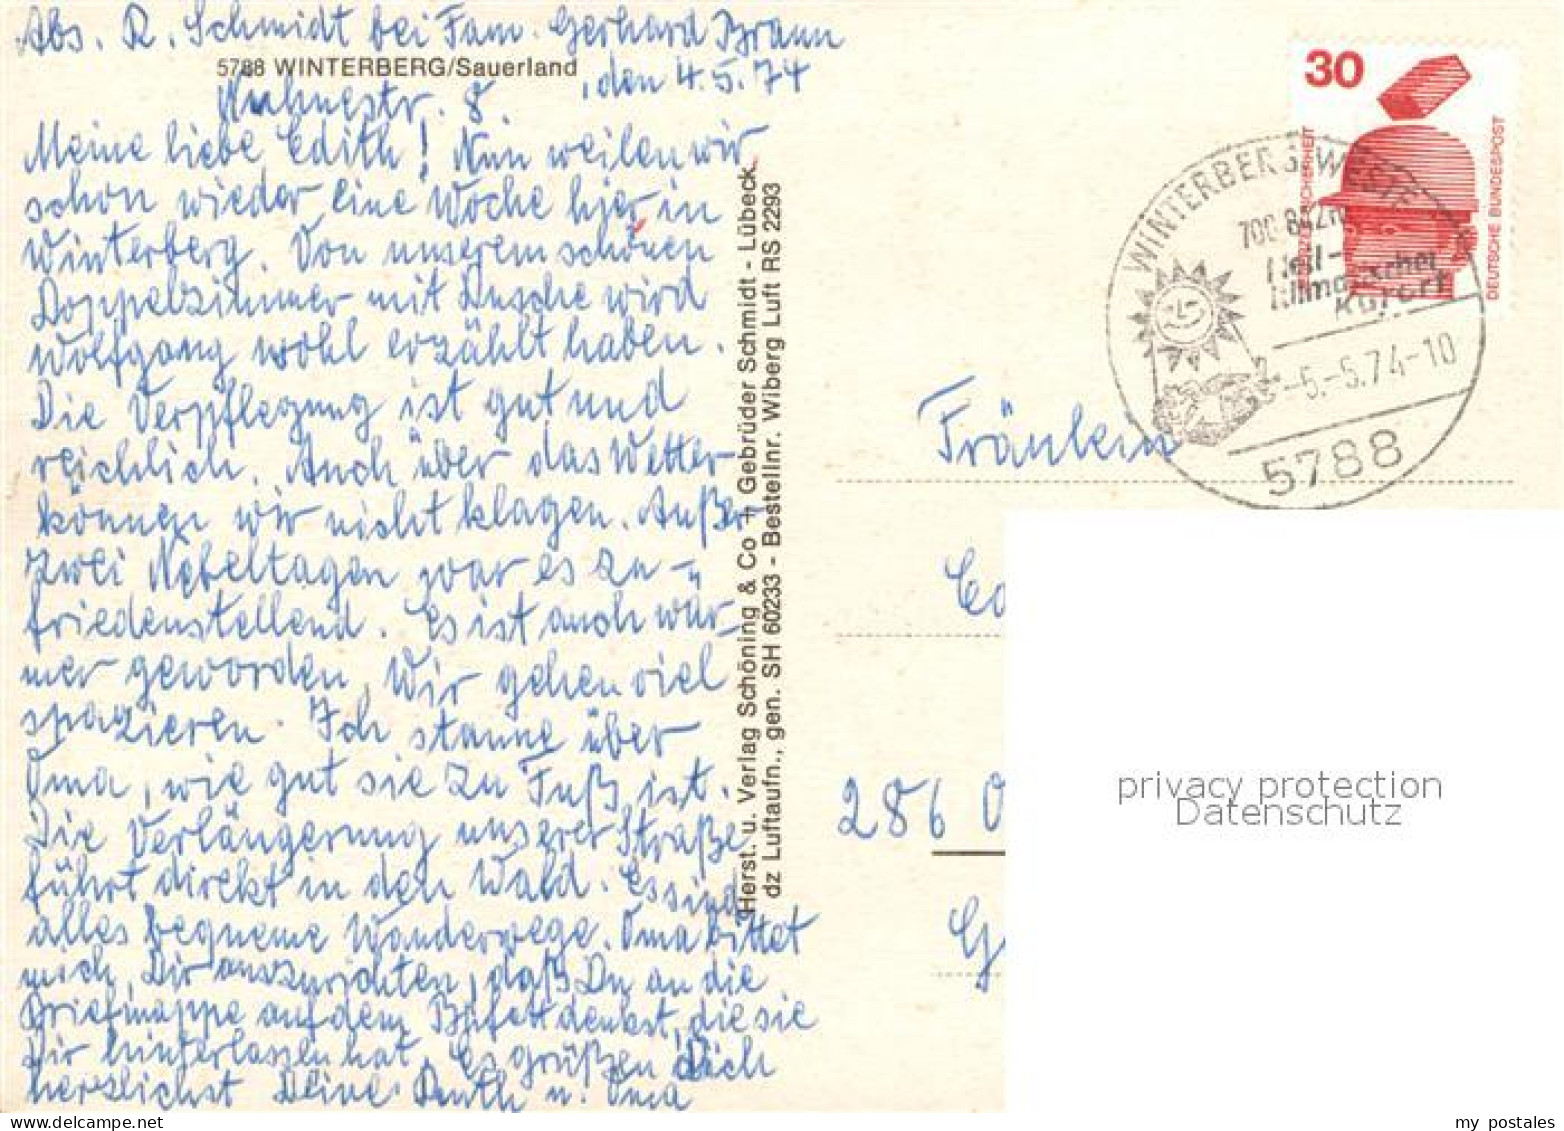 Abs. R. Schmidt bei Fam. Gerhard Braun
5788 WINTERBERG/Sauerland
Nuhnestr. 8
, den 4.5.74
Meine liebe Edith! Nun weilen wir
schon wieder eine Woche hier in
Winterberg. Von unserem schönen
Doppelzimmer mit Dusche wird
Wolfgang wohl erzählt haben.
Die Verpflegung ist gut und
reichlich. Auch über das Wetter
können wir nicht klagen. Außer
zwei Nebeltagen war es zu-
friedenstellend. Es ist auch wär-
mer geworden. Wir gehen viel
spazieren. Ich staune über
Oma, wie gut sie zu Fuß ist.
Die Verlängerung unserer Straße
führt direkt in den Wald. Es sind
alles bequeme Wanderwege. Oma bittet
mich, Dir auszurichten, daß Du an die
Briefmappe auf dem Büfett denkst, die sie
Dir hinterlassen hat. Es grüßen Dich
herzlichst Deine Ruth u. Oma
Herst. u. Verlag Schöning & Co + Gebrüder Schmidt - Lübeck
dz Luftaufn., gen. SH 60233 - Bestellnr. Wiberg Luft RS 2293
30
DEUTSCHE BUNDESPOST
WINTERBERG, WESTF
Heil-
Klimatischer
Kurort
-5.-5.74-10
5788
Fräulein
286 O
G
privacy protection
Datenschutz
my postales